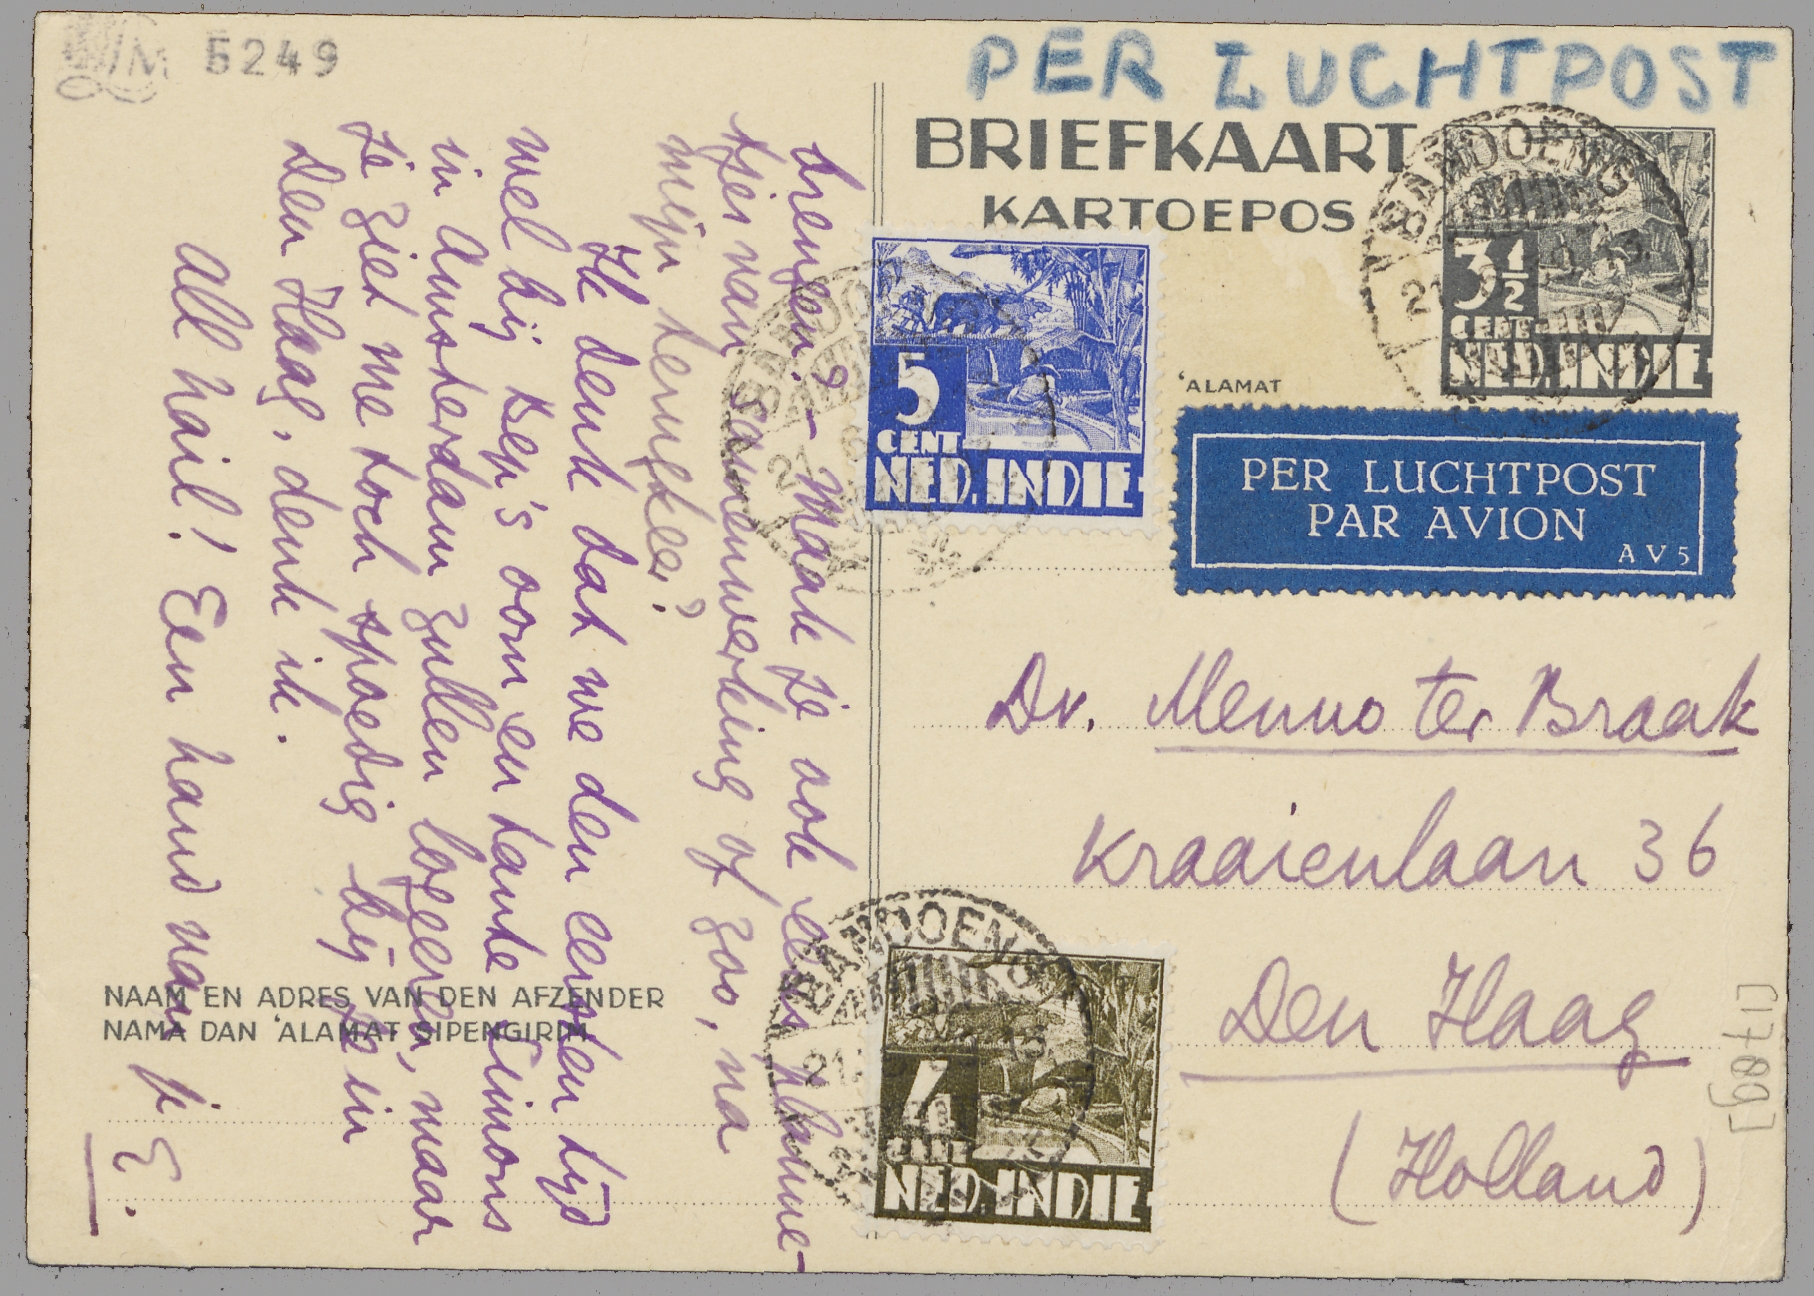 5249
PER LUCHTPOST
BRIEFKAART
KARTOEPOS
BANDOENG
3½
CENT
NED. INDIE
5
CENT
NED. INDIE
'ALAMAT
PER LUCHTPOST
PAR AVION
AV5
Dr. Menno ter Braak
Kraaienlaan 36
Den Haag
(Holland)
[1709]
BANDOENG
4
CENT
NED. INDIE
brengen? – Maak je ook een planne-
tjes van samenwerking of zoo, na
mijn terugkeer?
Ik denk dat we den eersten tijd
wel bij Bep's oom en tante Simons
in Amsterdam zullen logeeren, maar
je ziet me toch spoedig bij je in
Den Haag, denk ik.
All hail! Een hand van je
E.
NAAM EN ADRES VAN DEN AFZENDER
NAMA DAN 'ALAMAT SIPENGIRIM